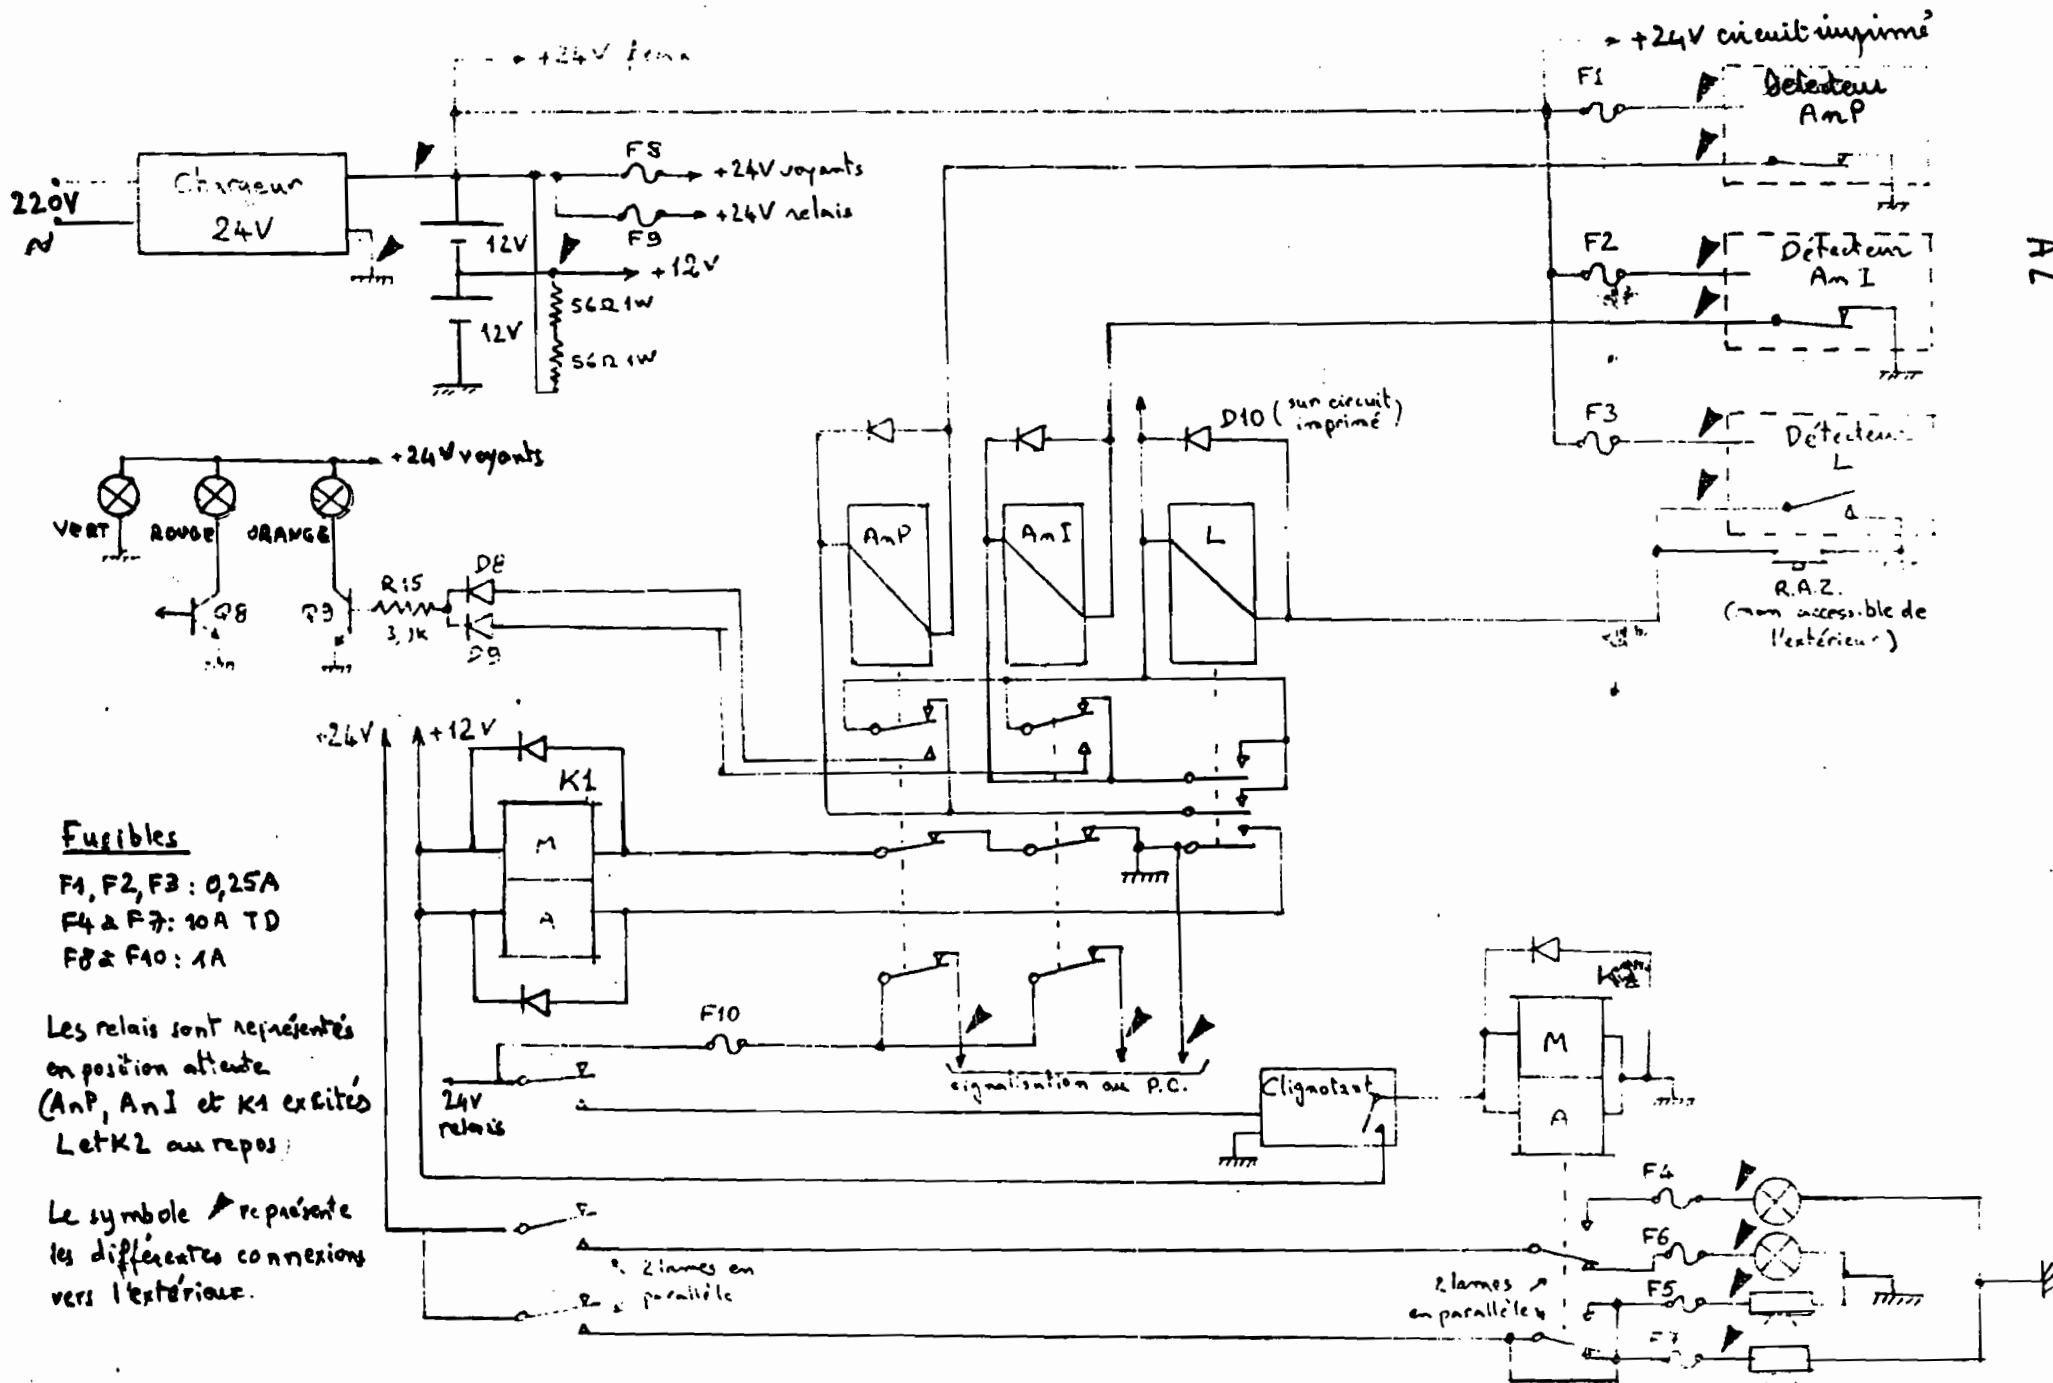 +24V
+24V circuit imprimé
F1
Détecteur
AnP
220V
Chargeur
24V
F8
+24V voyants
+24V relais
F9
12V
+12V
56Ω 1W
12V
56Ω 1W
F2
Détecteur
An I
A
F3
Détecteur
L
D10 (sur circuit
imprimé)
+24V voyants
VERT
ROUGE
ORANGE
AnP
AnI
L
R.A.Z.
(non accessible de
l'extérieur)
D8
R15
3,9K
D9
Q8
Q9
+24V
+12V
K1
M
A
Fusibles
F1, F2, F3 : 0,25A
F4 à F7: 10A TD
F8 à F10 : 1A
Les relais sont représentés
en position attente
(AnP, AnI et K1 excités
L et K2 au repos)
Le symbole représente
les différentes connexions
vers l'extérieur.
F10
24V
relais
signalisation au P.C.
Clignotant
M
A
F4
F6
F5
F7
2 lames en
parallèle
2 lames
en parallèle